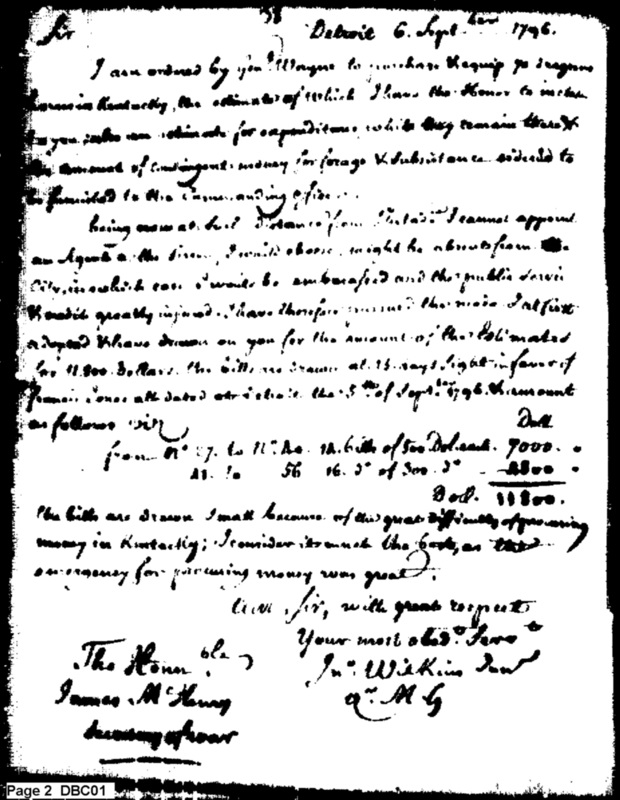 58
Sir Detroit 6. Sept.ber 1796.
I am ordered by Gen.l Wayne to purchase & equip 70 dragoon
horses in Kentucky, the estimate of which I have the Honor to inclose
to you, also an estimate for expenditures while they remain there &
the amount of contingent money for forage & subsistance ordered to
be furnished to the Commanding officer.
being now at such distance from Philad.a I cannot appoint
an Agent & the person I would choose, might be absent from the
City, in which case I would be embarassed and the public service
& credit greatly injured. I have therefore pursued the mode I at first
adopted & have drawn on you for the amount of the Estimates
for 11.800 Dollars. the bills are drawn at 15 days sight in favor of
Francis Jones all dated at Detroit the 5th of Sept.r 1796. & amount
as follows viz
Doll
from N.o 27. to N.o 40. 14. bills of 500 Dol. each. 7000.
41. to 56 16. d.o of 300. d.o 4800
Doll. 11800.
the bills are drawn small because of the great difficulty of procuring
money in Kentucky; I consider it much the best, as the
emergency for procuring money was great.
I am Sir, with great respect
Your most obed.t Serv.t
Jn.o Wilkins Jun.r
Q.r M G
The Honor.ble
James McHenry
Secretary of war
Page 2 DBC01